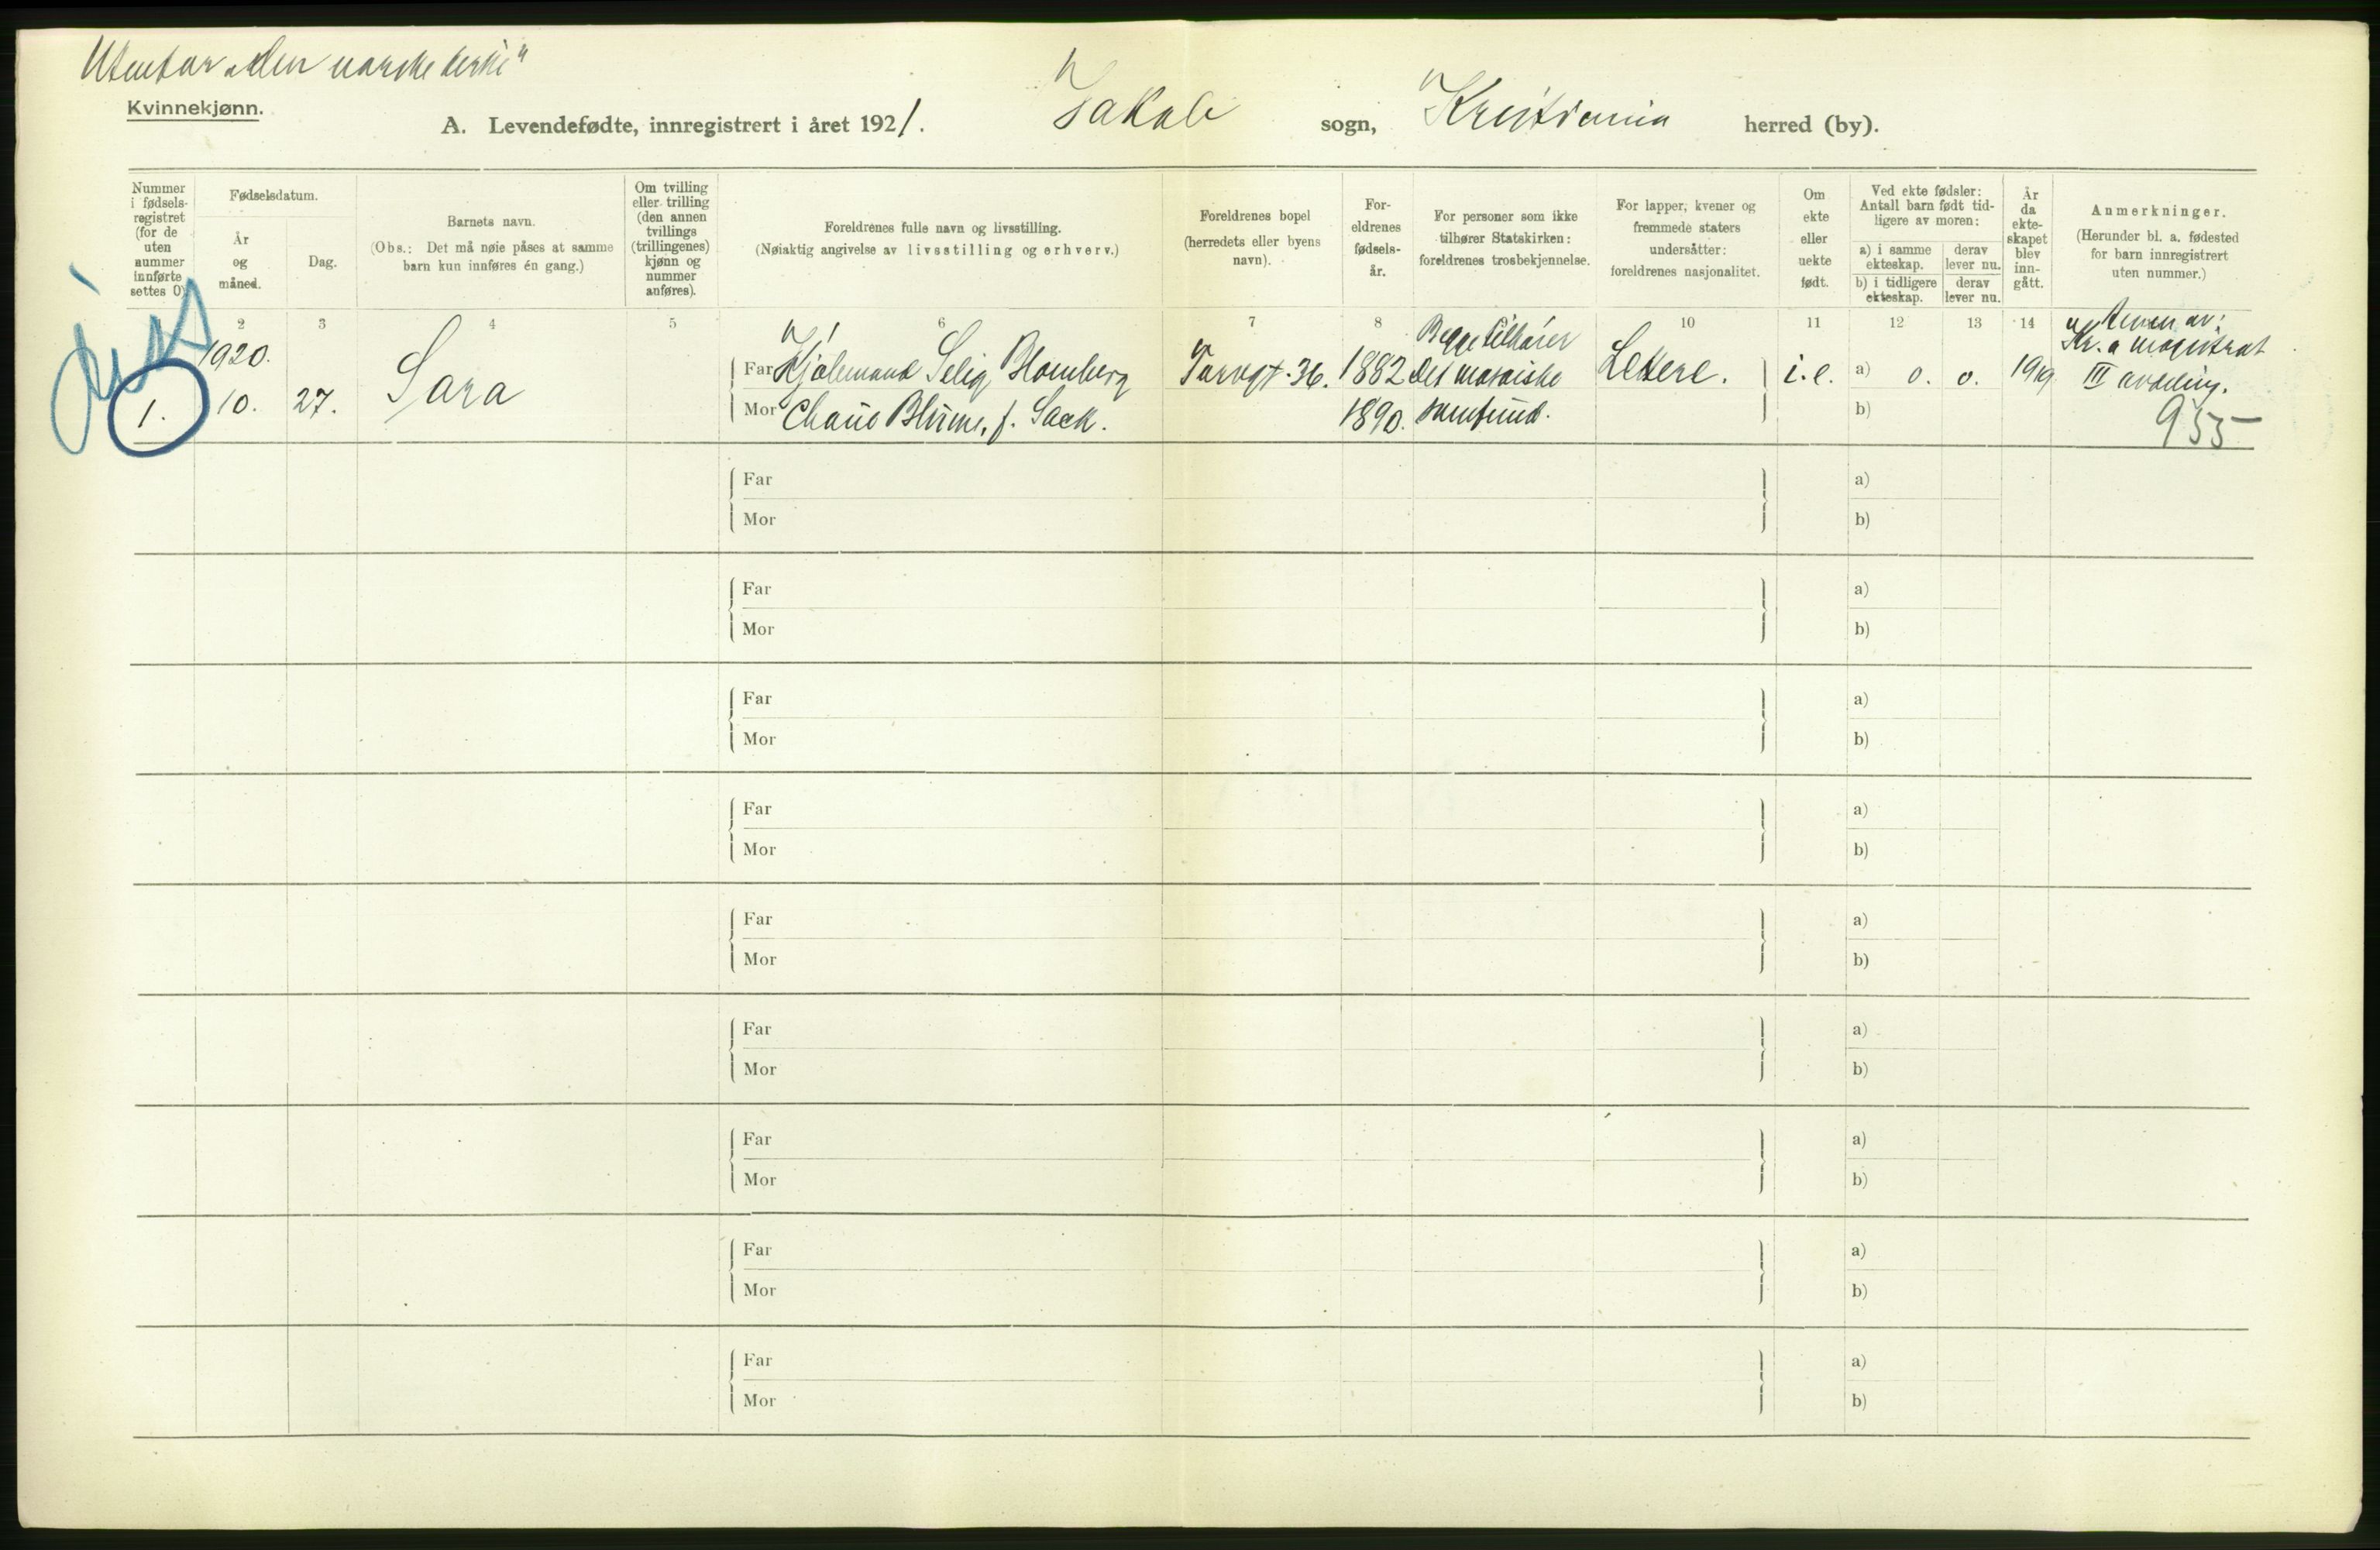 Utenfor "den norske kirke"
Kvinnekjønn.
A. Levendefødte, innregistrert i året 1921. Jakob sogn, Kristiania herred (by).
Nummer i fødselsregistret (for de uten nummer innførte settes 0)
Fødselsdatum.
År og måned.
Dag.
Barnets navn.
(Obs.: Det må nøie påses at samme barn kun innføres én gang.)
Om tvilling eller trilling (den annen tvillings (trillingenes) kjønn og nummer anføres).
Foreldrenes fulle navn og livsstilling.
(Nøiaktig angivelse av livsstilling og erhverv.)
Foreldrenes bopel (herredets eller byens navn).
Foreldrenes fødselsår.
For personer som ikke tilhører Statskirken: foreldrenes trosbekjennelse.
For lapper, kvener og fremmede staters undersåtter: foreldrenes nasjonalitet.
Om ekte eller uekte født.
Ved ekte fødsler: Antall barn født tidligere av moren:
a) i samme ekteskap. derav lever nu.
b) i tidligere ekteskap. derav lever nu.
År da ekteskapet blev inngått.
Anmerkninger.
(Herunder bl. a. fødested for barn innregistrert uten nummer.)
2 3 4 5 6 7 8 10 11 12 13 14
1. 1920. 10. 27. Sara
Far Selig Blomberg Torvgt. 36. 1882 Begge tilhører Det mosaiske Lettere. i.e. a) 0. 0. 1919
Mor Blume, f. Sack. 1890. samfund. b)
av:
Kr.a magistrat
III avdeling.
955
Far a)
Mor b)
Far a)
Mor b)
Far a)
Mor b)
Far a)
Mor b)
Far a)
Mor b)
Far a)
Mor b)
Far a)
Mor b)
Far a)
Mor b)
Far a)
Mor b)